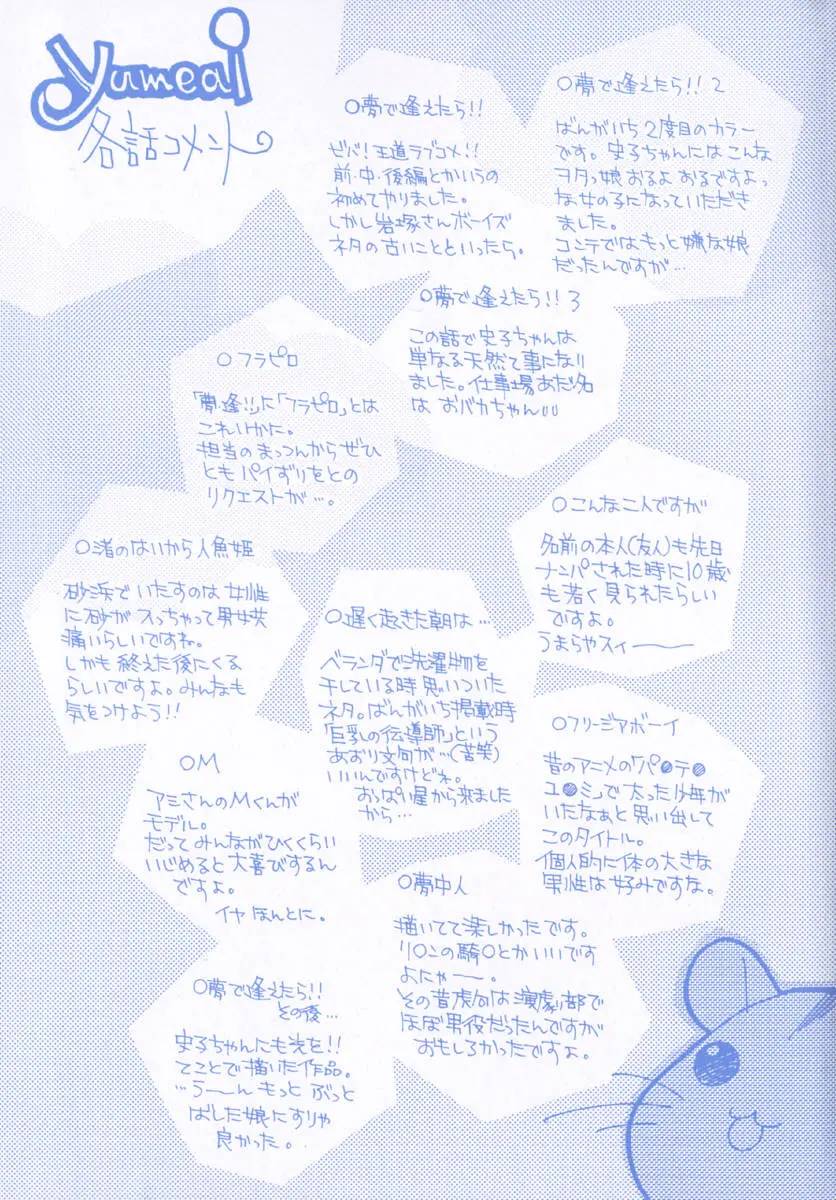 yumeai
各話コメント
○夢で逢えたら!!
ビバ!王道ラブコメ!!
前・中・後編とかいうの
初めてやりました。
しかし岩塚さんボーイズ
ネタの古いことといったら。
○夢で逢えたら!! 2
ばんがいち2度目のカラー
です。史子ちゃんにはこんな
ヲタっ娘おるよおるですよっ
な女の子になっていただき
ました。
コンテではもっと嫌な娘
だったんですが…
○夢で逢えたら!! 3
この話で史子ちゃんは
単なる天然て事になり
ました。仕事場あだ名
は おバカちゃん
○フラピロ
「夢・逢!!」に「フラピロ」とは
これいかに。
担当のまっつんからぜひ
ともパイずりをとの
リクエストが…。
○こんな二人ですが
名前の本人(友人)も先日
ナンパされた時に10歳
も若く見られたらしい
ですよ。
うまらやスィ――
○渚のはいから人魚姫
砂浜でいたすのは女性
に砂が入っちゃって男女共
痛いらしいですね。
しかも終えた後にくる
らしいですよ。みんなも
気をつけよう!!
○遅く起きた朝は…
ベランダで洗濯物を
干している時思いついた
ネタ。ばんがいち掲載時
「巨乳の伝導師」という
あおり文句が…(苦笑)
いいんですけどね。
おっぱい屋から来ました
から…
○フリージアボーイ
昔のアニメの「パ●テ●
ユ●ミ」で太った少年が
いたなぁと思い出して
このタイトル。
個人的に体の大きな
男性は好みですな。
○M
アミさんのMくんが
モデル。
だってみんながひくくらい
いじめると大喜びするん
ですよ。
イヤ ほんとに。
○夢中人
描いてて楽しかったです。
リ○ンの騎○とかいいです
よにゃー。
その昔虎向は演劇部で
ほぼ男役だったんですが
おもしろかったですよ。
○夢で逢えたら!!
その後…
史子ちゃんにも光を!!
てことで描いた作品。
…うーん もっと ぶっと
ばした娘にすりゃ
良かった。